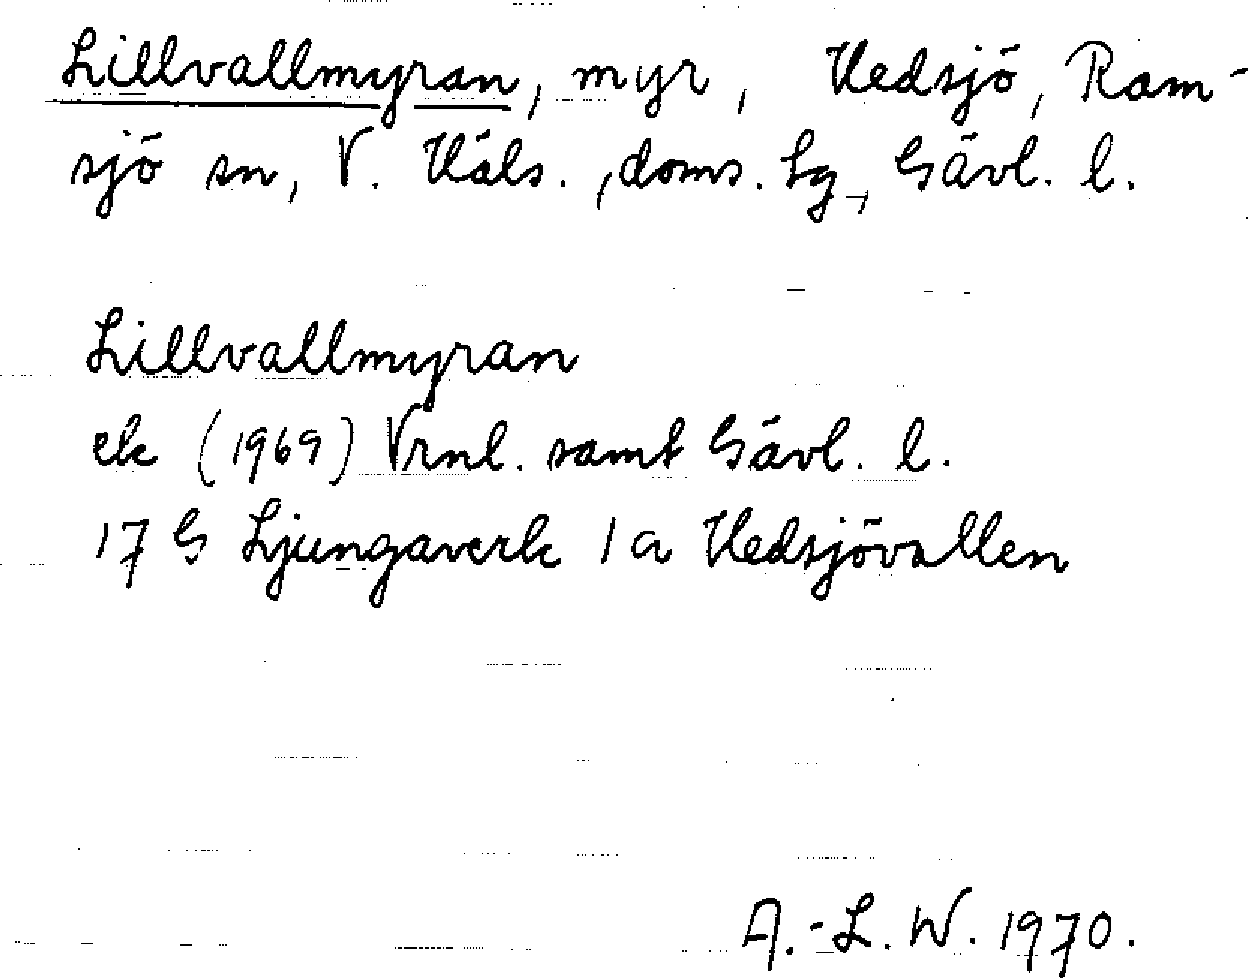 Lillvallmyran, myr, Hedsjö, Ram-
sjö sn, V. Häls., doms. lg, Gävl. l.
Lillvallmyran
ek (1969) Vrnl. samt Gävl. l.
17 G Ljungaverk 1a Hedsjövallen
A.-L. W. 1970.